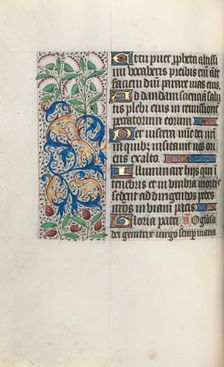 t tu puer ppheta altissi
mi vocaberis preibis eni ante
faciem dni parare vias eius
Ad dandam scientia salu
tis plebi eius in remissionem
peccatorum eorum
Per viscera mie dei nri
in quib; visitauit nos oriens
ex alto
Illuminare hijs qui in
tenebris et in vmbra mortis
sedent ad dirigendos pedes
nros in viam pacis
Gloria patri O gloriosa
dei genitrix virgo semp maria